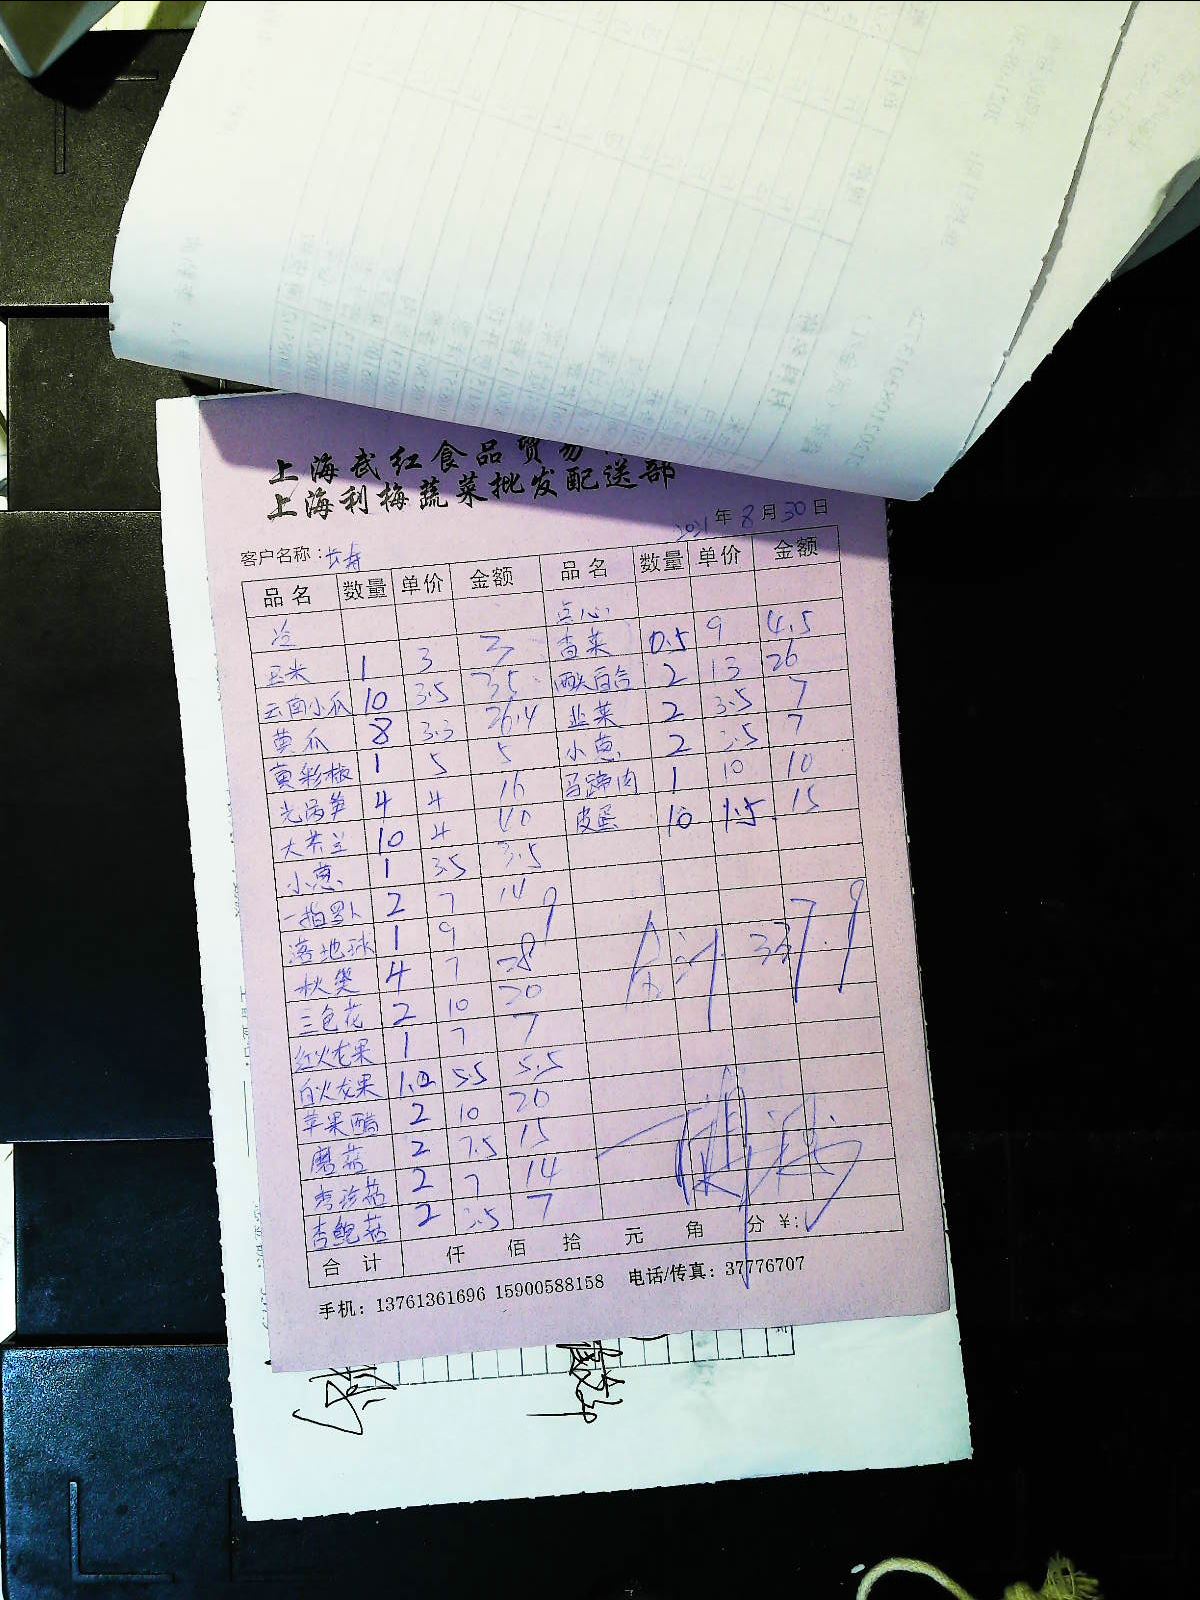 上海武红食品贸易
上海利梅蔬菜批发配送部
2021年8月30日
客户名称：长寿
品名 数量 单价 金额 品名 数量 单价 金额
冷 点心
玉米 1 3 3 香菜 0.5 9 4.5
云南小瓜 10 3.5 35 百合 2 13 26
黄瓜 8 3.3 26.4 韭菜 2 3.5 7
黄彩椒 1 5 5 小葱 2 3.5 7
光莴笋 4 4 16 马蹄肉 1 10 10
大芥兰 10 4 40 皮蛋 10 1.5 15
小葱 1 3.5 3.5
一指罗卜 2 7 14
落地球 1 9 9
秋葵 4 7 28
三色花 2 10 20
红火龙果 1 7 7
白火龙果 5.5 5.5
苹果醋 2 10 20
磨菇 2 7.5 15
秀珍菇 2 7 14
杏鲍菇 2 3.5 7
合计 337.9
合计 仟 佰 拾 元 角 分 ¥:
手机：13761361696 15900588158 电话/传真：37776707